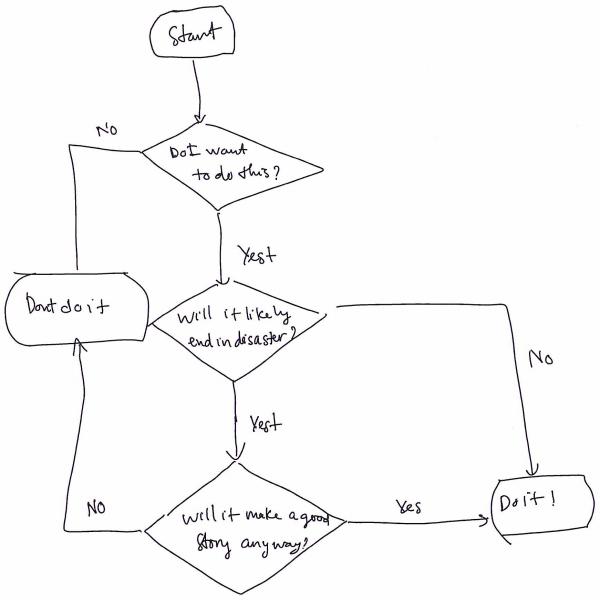 Start
No
Do I want
to do this?
Yest
Dont do it
Will it likely
end in disaster?
No
Yest
Will it make a good
story anyway?
No
Yes
Do it!